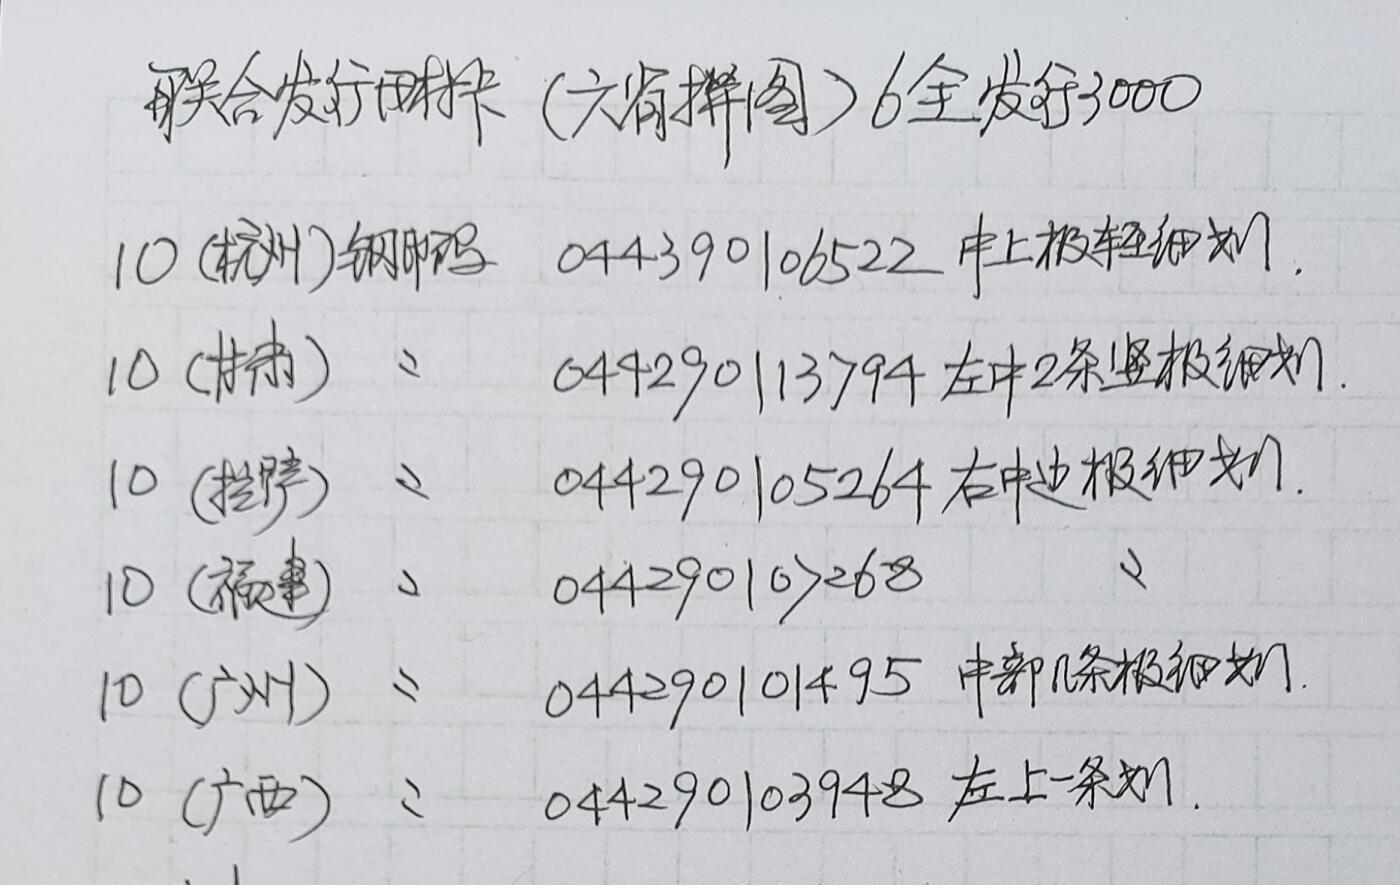 联合发行田村卡（六省拼图）6全发行3000
10（杭州）钢印码 044390106522 中上极轻细划.
10（甘肃）〃 044290113794 左中2条竖极细划.
10（拉萨）〃 044290105264 右中边极细划.
10（福建）〃 044290107268 〃
10（广州）〃 044290101495 中部几条极细划.
10（广西）〃 044290103948 左上一条划.